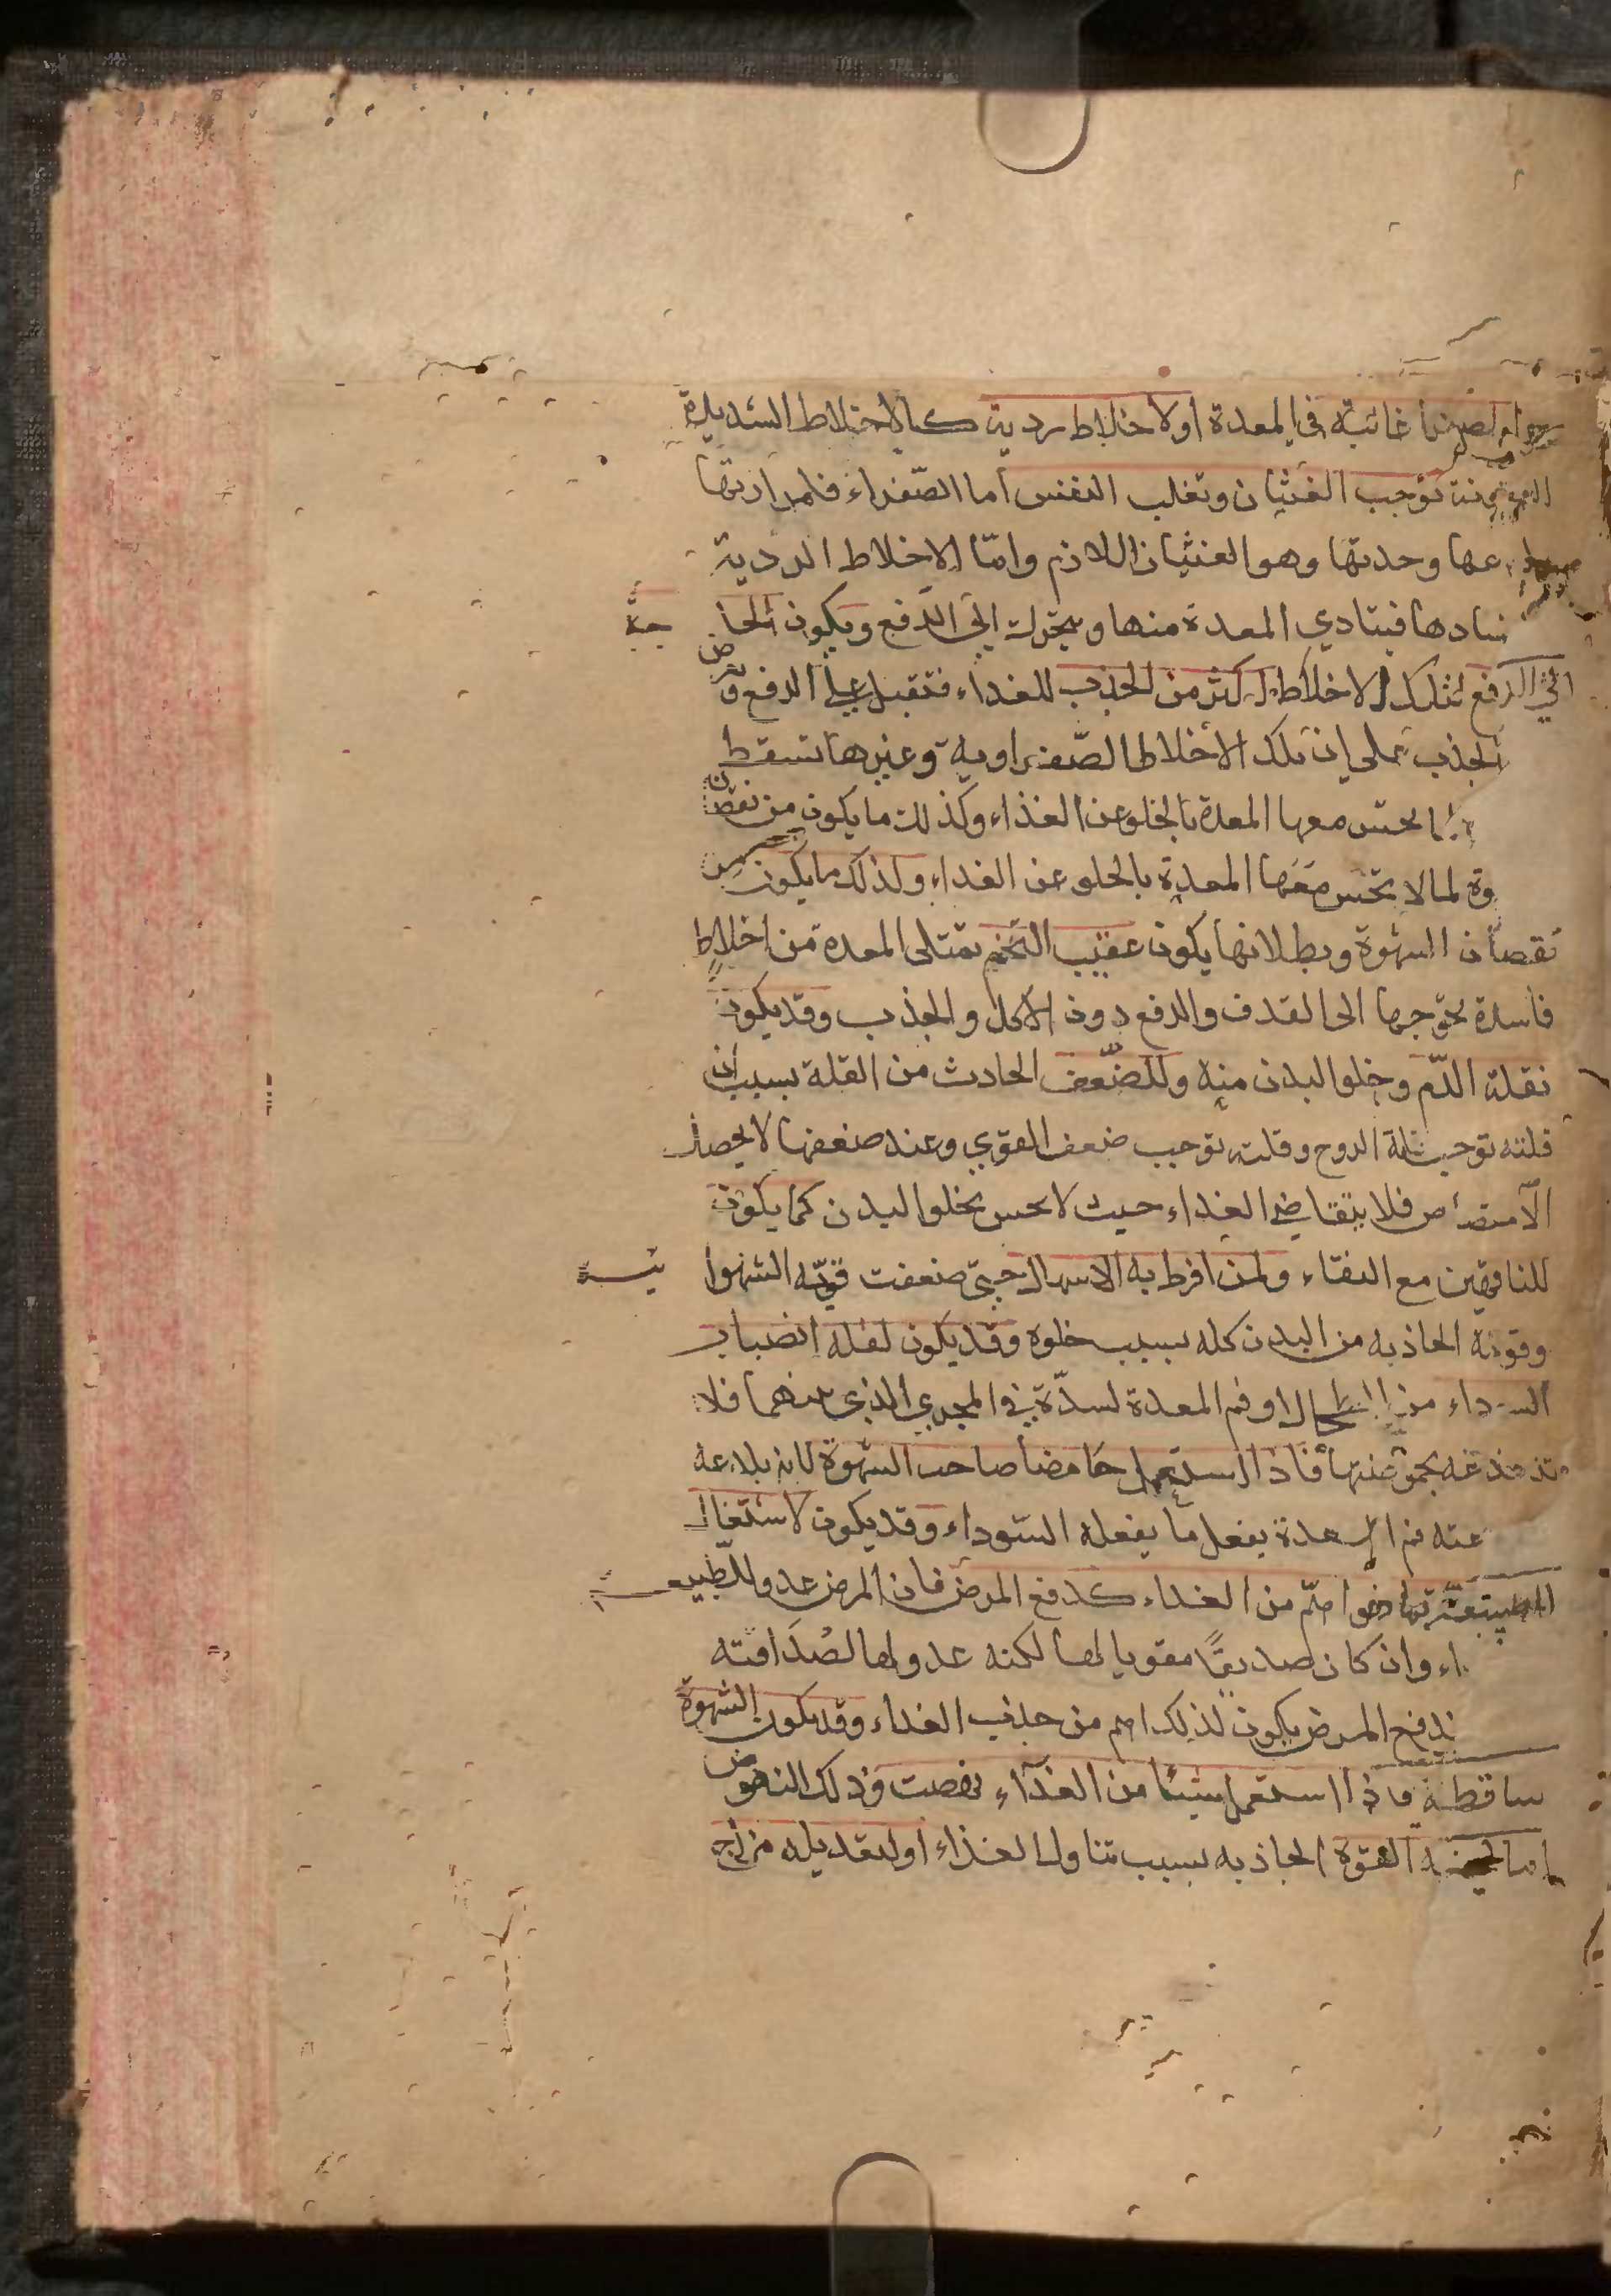 غائبة في المعدة او لاخلاط ردية كالاخلاط الشديدة
توجب الغثيان وتغلب النفس اما الصفراء فلمرارتها
وحدتها وهو الغثيان اللازم واما الاخلاط الردية
المعدة منها ويتحرك الى الدفع ويكون الحا جة
الى الدفع لتلك الاخلاط اكثر من الجذب للغذاء فتقبل على الدفع و تعرض
الجذب على ان تلك الاخلاط الصفراوية وغيرها تسقط
معها المعدة بالخلو عن الغذاء وكذلك ما يكون من نقصان
وة لما لا تحس معها المعدة بالخلو عن الغذاء ولذلك ما يكون من
نقصان الشهوة وبطلانها يكون عقيب التخم تمتلى المعدة من اخلاط
فاسدة تحوجها الى القذف والدفع دون الاكل والجذب وقد يكون
نقلة الدم وخلو البدن منه وللضعف الحادث من القلة بسبب ان
قلته توجب قلة الروح وقلته توجب ضعف القوي وعند ضعفها لا يحصل
الامتصاص فلا يتقاضى الغذاء حيث لا يحس بخلو البدن كما يكون
للناقهين مع النقاء ولمن افرط به الاسهال حتى ضعفت قوته الشهوا نية
وقوته الجاذبه من البدن كله بسبب خلوه وقد يكون لقلة انصباب
السوداء من الطحال او فم المعدة لسدة في المجري الذي بينهما فلا
تدغدغه بحموضتها فاذا استعمل حامضا صاحب الشهوة لانه بلادعه
فم المعدة يفعل ما يفعله السوداء وقد يكون لاشتغال
من الغذاء كدفع المرض فان المرض عدو للطبيعة
اء وان كان صديقا مقويا لها لكنه عدو لها لصداقته
ندفع المرض يكون لذلك اهم من جذب الغذاء وقد يكون الشهوة
ساقطة فاذا استعمل شيئا من الغذاء نهضت وذلك النهوض
القوة الجاذبه بسبب تناول الغذاء او لتعديله مزاج